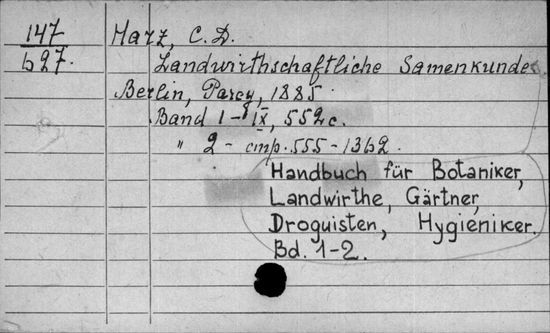 147 Harz, C.D.
627. Landwirthschaftliche Samenkunde
Berlin, Parey, 1885.
Band 1 - IX, 552 c.
" 2 - cmp. 555 - 1362.
Handbuch für Botaniker,
Landwirthe, Gärtner,
Droguisten, Hygieniker.
Bd. 1-2.